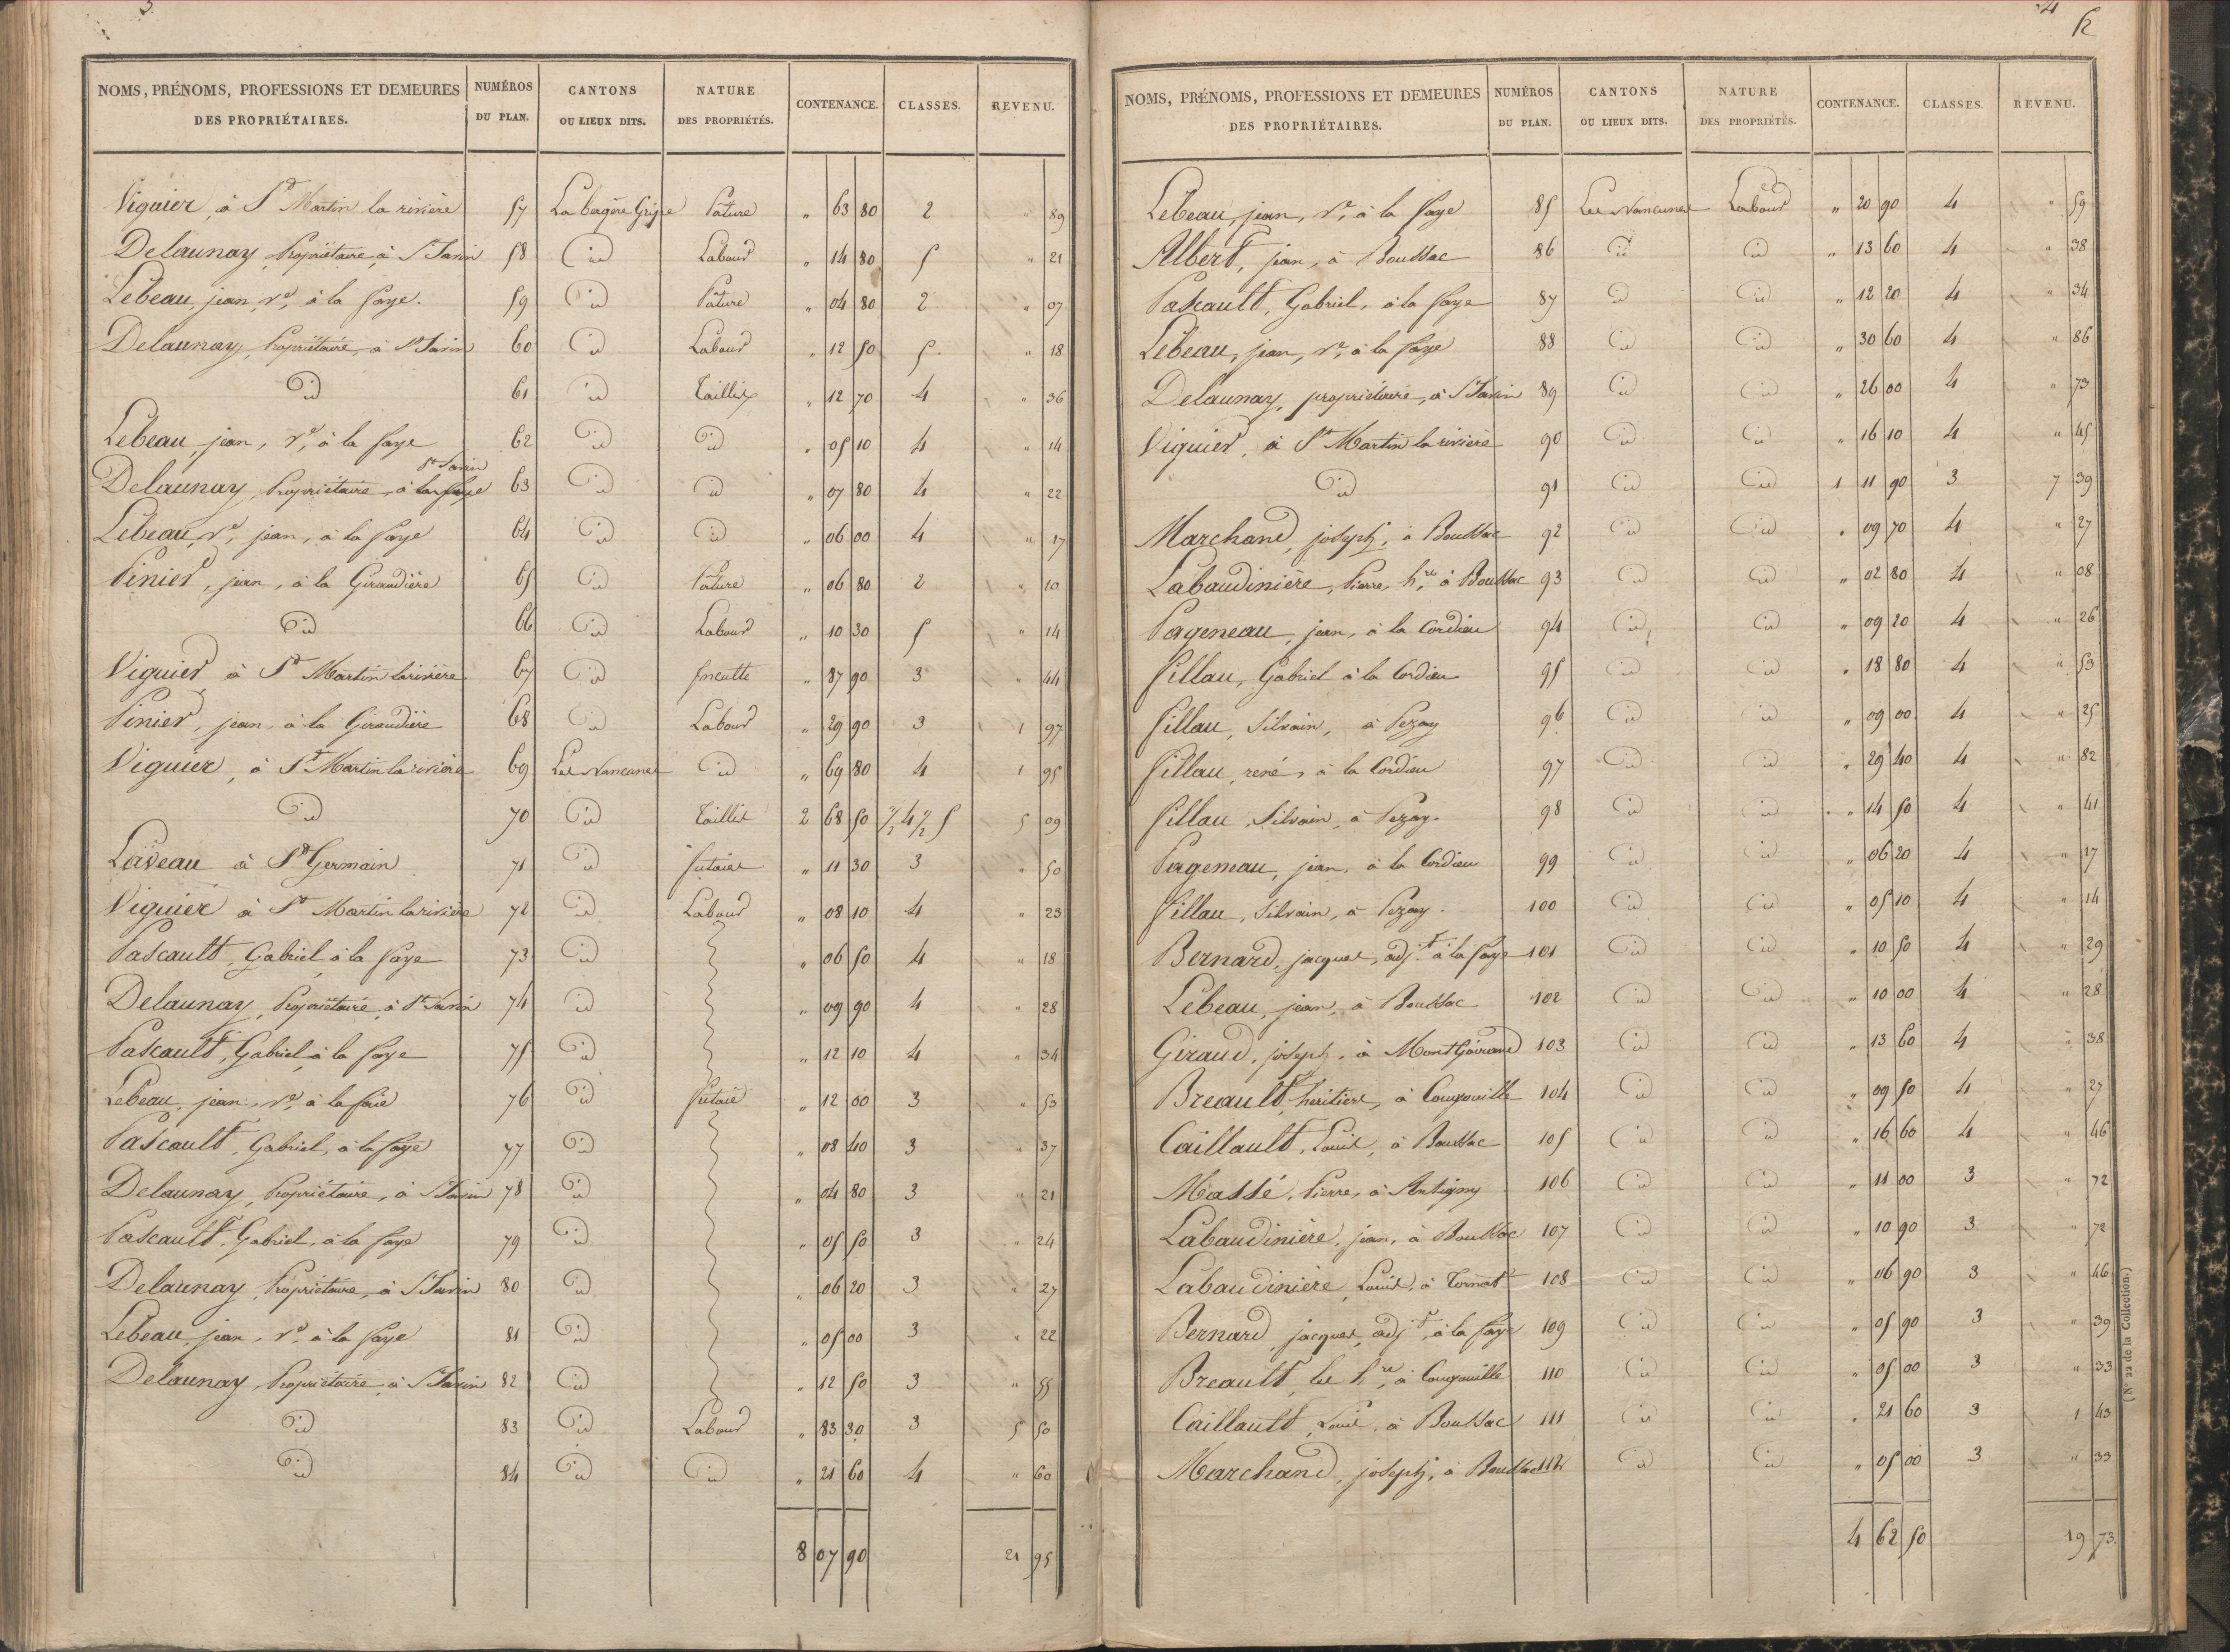 3.
NOMS, PRÉNOMS, PROFESSIONS ET DEMEURES DES PROPRIÉTAIRES. NUMÉROS DU PLAN. CANTONS OU LIEUX DITS. NATURE DES PROPRIÉTÉS. CONTENANCE. CLASSES. REVENU.
Viguier, à St Martin la rivière 57 La bergère Grise Pâture " 63 80 2 " 89
Delaunay, Propriétaire, à St Savin 58 id Labour " 14 80 5 " 21
Lebeau, jean, Ve, à la faye. 59 id Pâture " 04 80 2 " 07
Delaunay, Propriétaire, à St Savin 60 id Labour " 12 50 5 " 18
id 61 id Taillis " 12 70 4 " 36
Lebeau, jean, Ve, à la faye 62 id id " 05 10 4 " 14
Delaunay, Propriétaire, à la faye St Savin 63 id id " 07 80 4 " 22
Lebeau, Ve, jean, à la faye 64 id id " 06 00 4 " 17
Pinier, jean, à la Giraudière 65 id Pâture " 06 80 2 " 10
id 66 id Labour " 10 30 5 " 14
Viguier à St Martin la rivière 67 id Inculte " 87 90 3 " 44
Pinier, jean, à la Giraudière 68 id Labour " 29 90 3 1 97
Viguier, à St Martin la rivière 69 Les Nancunes id " 69 80 4 1 95
id 70 id Taillis 2 68 50 1/2 4 1/2 5 5 09
Laveau à St Germain 71 id futaies " 11 30 3 " 50
Viguier à St Martin la rivière 72 id Labour " 08 10 4 " 23
Pascault, Gabriel, à la faye 73 id " 06 50 4 " 18
Delaunay, Propriétaire, à St Savin 74 id " 09 90 4 " 28
Pascault, Gabriel, à la faye 75 id " 12 10 4 " 34
Lebeau, jean, Ve, à la faie 76 id futaie " 12 00 3 " 53
Pascault, Gabriel, à la faye 77 id " 08 40 3 " 37
Delaunay, Propriétaire, à St Savin 78 id " 04 80 3 " 21
Pascault, Gabriel, à la faye 79 id " 05 50 3 " 24
Delaunay, Propriétaire, à St Savin 80 id " 06 20 3 " 27
Lebeau, jean, Ve, à la faye 81 id " 05 00 3 " 22
Delaunay, Propriétaire, à St Savin 82 id " 12 50 3 " 55
id 83 id Labour " 83 30 3 5 50
id 84 id id " 21 60 4 " 60
8 07 90 21 95
4
NOMS, PRÉNOMS, PROFESSIONS ET DEMEURES DES PROPRIÉTAIRES. NUMÉROS DU PLAN. CANTONS OU LIEUX DITS. NATURE DES PROPRIÉTÉS. CONTENANCE. CLASSES. REVENU.
Lebeau, jean, Ve, à la faye 85 Les Nancunes Labour " 20 90 4 " 59
Albert, jean, à Boussac 86 id id " 13 60 4 " 38
Pascault, Gabriel, à la faye 87 id id " 12 20 4 " 34
Lebeau, jean, Ve, à la faye 88 id id " 30 60 4 " 86
Delaunay, propriétaire, à St Savin 89 id id " 26 00 4 " 73
Viguier, à St Martin la rivière 90 id id " 16 10 4 " 45
id 91 id id 1 11 90 3 7 39
Marchand, joseph, à Boussac 92 id id " 09 70 4 " 27
Labaudinière, Pierre, hre, à Boussac 93 id id " 02 80 4 " 08
Pageneau, jean, à la Cordieu 94 id id " 09 20 4 " 26
fillau, Gabriel à la Cordieu 95 id id " 18 80 4 " 53
fillau, Silvain, à Pezay 96 id id " 09 00 4 " 25
fillau, rené, à la Cordieu 97 id id " 29 40 4 " 82
fillau, Silvain, à Pezay. 98 id id " 14 50 4 " 41
Pageneau, jean, à la Cordieu 99 id id " 06 20 4 " 17
fillau, Silvain, à Pezay. 100 id id " 05 10 4 " 14
Bernard, jacques, adjt à la faye 101 id id " 10 50 4 " 29
Lebeau, jean, à Boussac 102 id id " 10 00 4 " 28
Giraud, joseph, à MontGairand 103 id id " 13 60 4 " 38
Breault, héritiers, à 104 id id " 09 50 4 " 27
Caillault, Louis, à Boussac 105 id id " 16 60 4 " 46
Massé, Pierre, à Antigny 106 id id " 11 00 3 " 72
Labaudinière, jean, à Boussac 107 id id " 10 90 3 " 72
Labaudinière, Louis, à Tornat 108 id id " 06 90 3 " 46
Bernard, jacques, adjt, à la faye 109 id id " 05 90 3 " 39
Breault, les hre, à 110 id id " 05 00 3 " 33
Caillault, Louis, à Boussac 111 id id " 21 60 3 1 43
Marchand, joseph, à Boussac 112 id id " 05 00 3 " 33
4 62 50 19 73
(N° 22 de la Collection.)